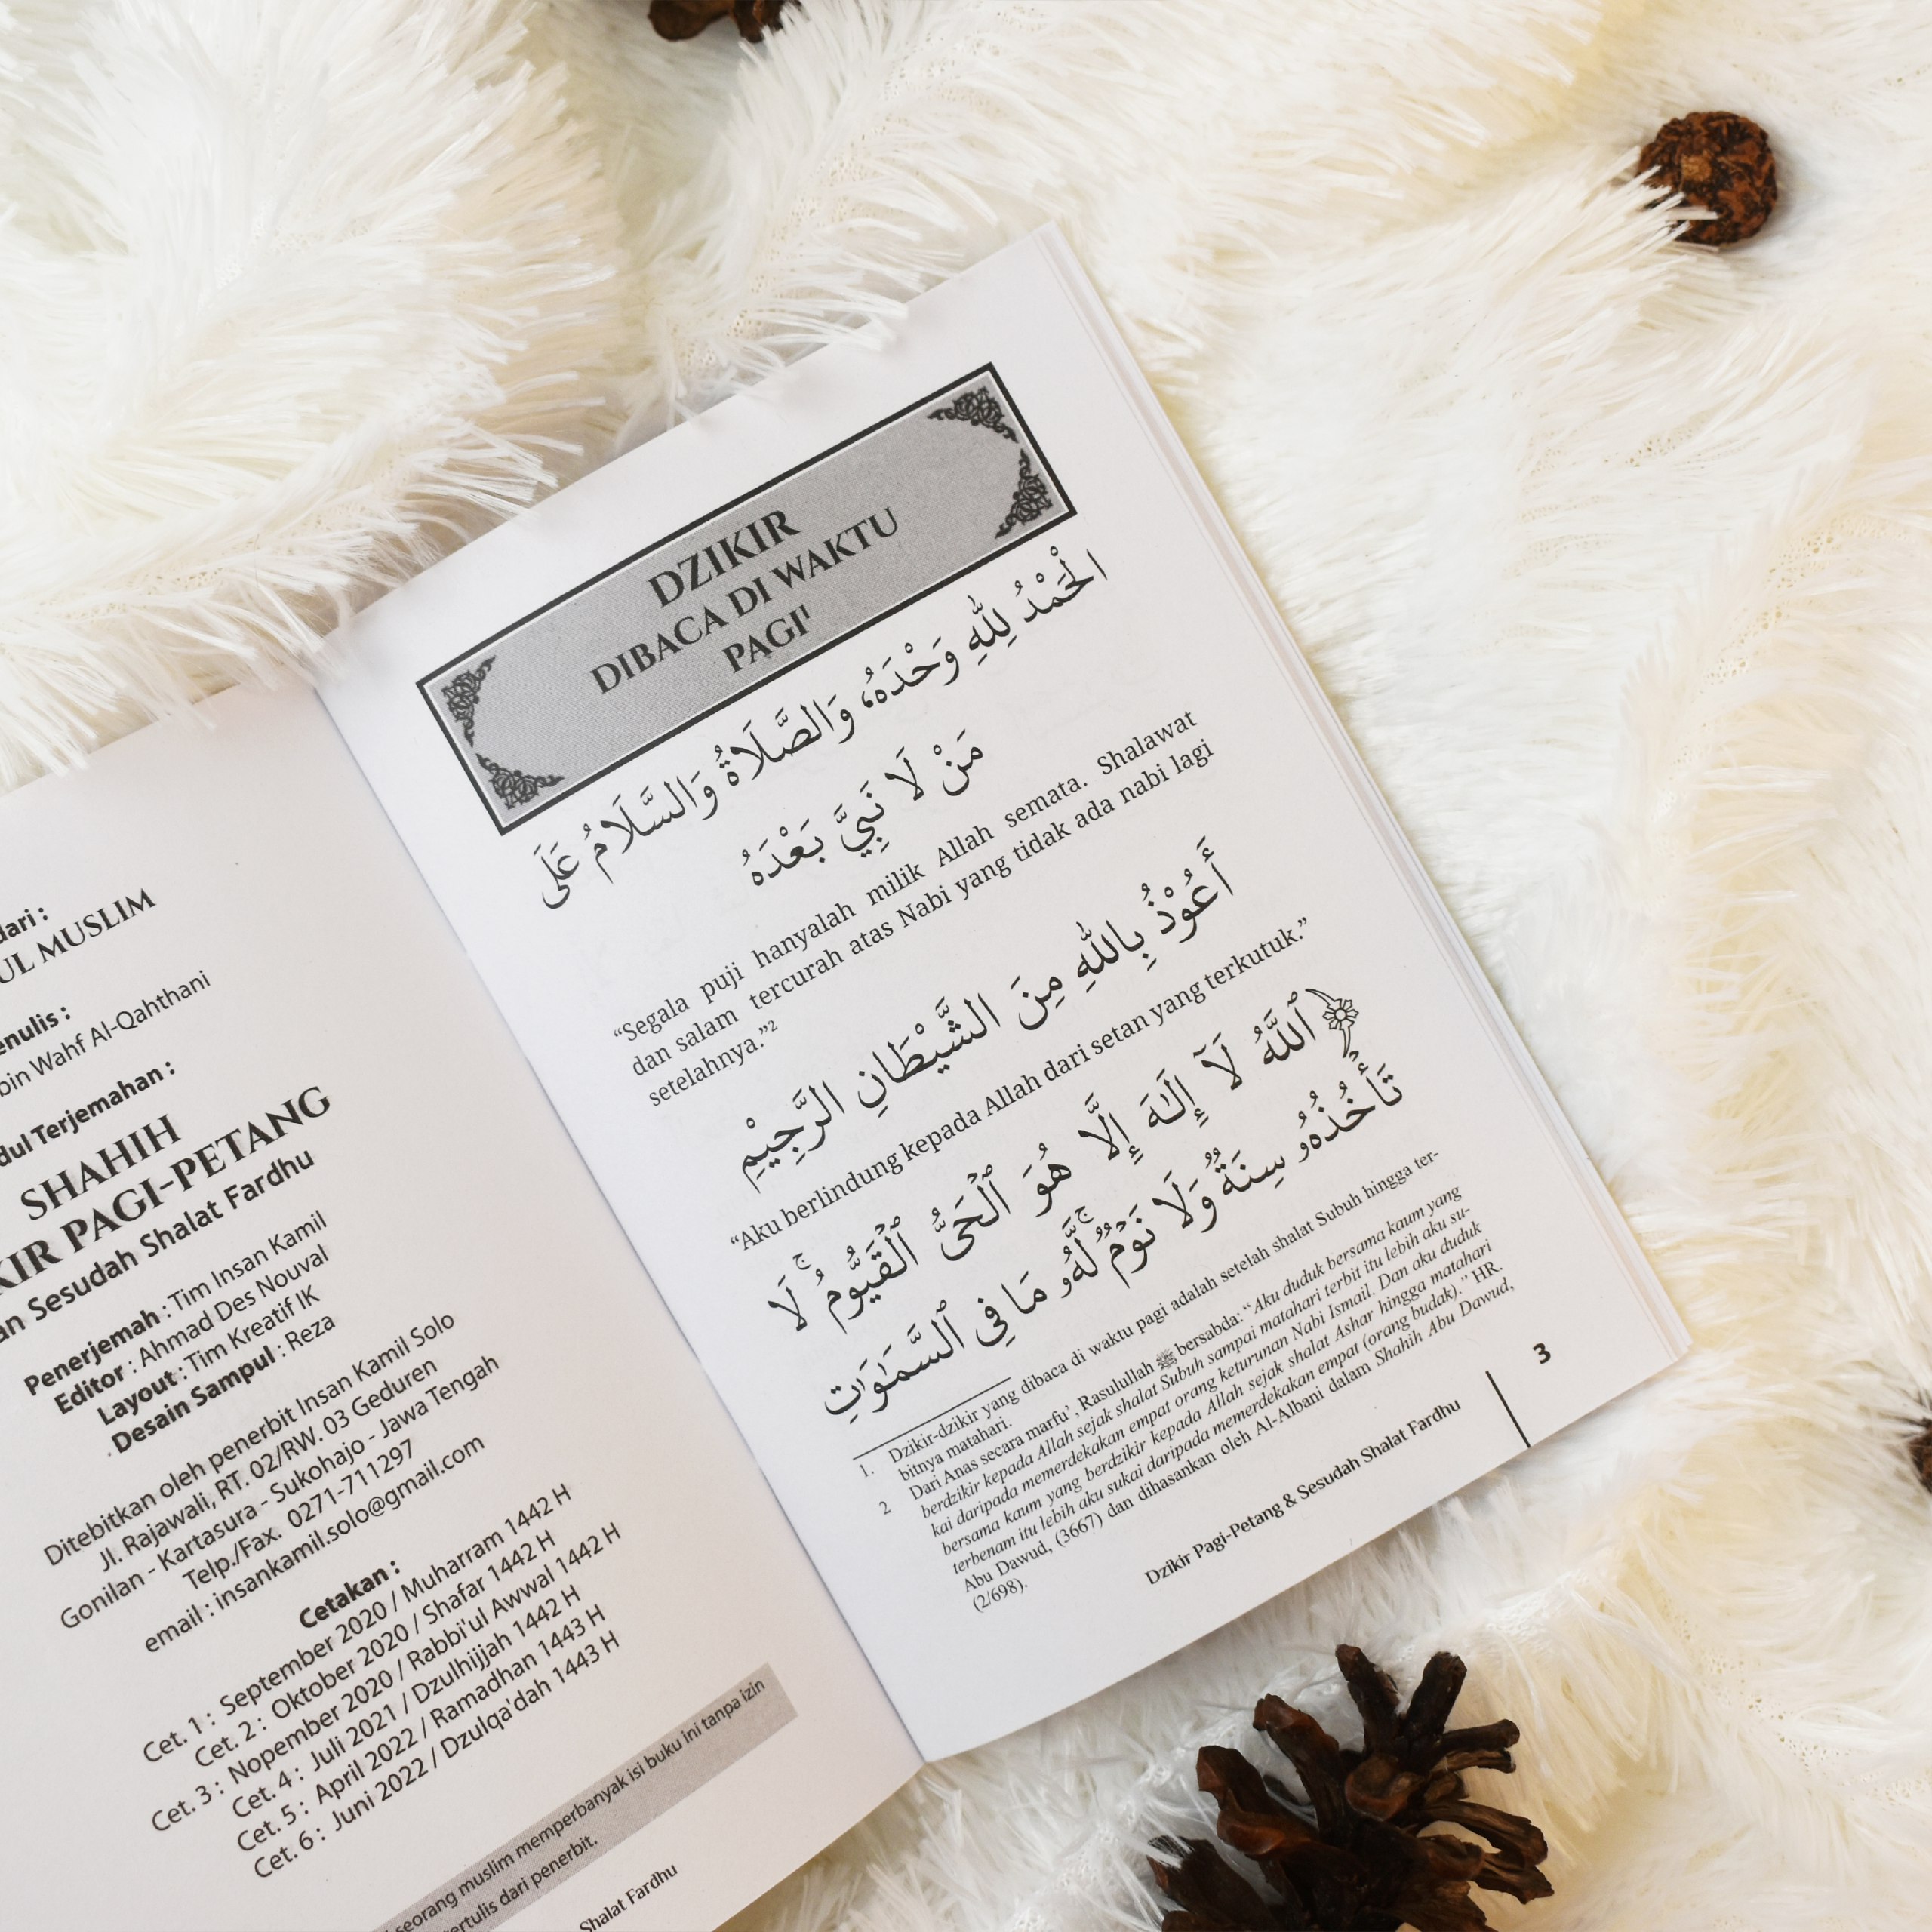 dari :
UL MUSLIM
enulis :
bin Wahf Al-Qahthani
dul Terjemahan :
SHAHIH
KIR PAGI-PETANG
an Sesudah Shalat Fardhu
Penerjemah : Tim Insan Kamil
Editor : Ahmad Des Nouval
Layout : Tim Kreatif IK
Desain Sampul : Reza
Ditebitkan oleh penerbit Insan Kamil Solo
Jl. Rajawali, RT. 02/RW. 03 Geduren
Gonilan - Kartasura - Sukohajo - Jawa Tengah
Telp./Fax. 0271-711297
email : insankamil.solo@gmail.com
Cetakan :
Cet. 1 : September 2020 / Muharram 1442 H
Cet. 2 : Oktober 2020 / Shafar 1442 H
Cet. 3 : Nopember 2020 / Rabbi'ul Awwal 1442 H
Cet. 4 : Juli 2021 / Dzulhijjah 1442 H
Cet. 5 : April 2022 / Ramadhan 1443 H
Cet. 6 : Juni 2022 / Dzulqa'dah 1443 H
seorang muslim memperbanyak isi buku ini tanpa izin
ertulis dari penerbit.
Shalat Fardhu
DZIKIR
DIBACA DI WAKTU
PAGI¹
الْحَمْدُ لِلّٰهِ وَحْدَهُ، وَالصَّلَاةُ وَالسَّلَامُ عَلَى
مَنْ لَا نَبِيَّ بَعْدَهُ
“Segala puji hanyalah milik Allah semata. Shalawat
dan salam tercurah atas Nabi yang tidak ada nabi lagi
setelahnya.”²
أَعُوْذُ بِاللّٰهِ مِنَ الشَّيْطَانِ الرَّجِيْمِ
“Aku berlindung kepada Allah dari setan yang terkutuk.”
﴿ٱللَّهُ لَآ إِلَـٰهَ إِلَّا هُوَ ٱلْحَىُّ ٱلْقَيُّومُ ۚ لَا
تَأْخُذُهُۥ سِنَةٌ وَلَا نَوْمٌ ۚ لَّهُۥ مَا فِي ٱلسَّمَـٰوَٰتِ
1. Dzikir-dzikir yang dibaca di waktu pagi adalah setelah shalat Subuh hingga ter-
bitnya matahari.
2 Dari Anas secara marfu’, Rasulullah ﷺ bersabda: “Aku duduk bersama kaum yang
berdzikir kepada Allah sejak shalat Subuh sampai matahari terbit itu lebih aku su-
kai daripada memerdekakan empat orang keturunan Nabi Ismail. Dan aku duduk
bersama kaum yang berdzikir kepada Allah sejak shalat Ashar hingga matahari
terbenam itu lebih aku sukai daripada memerdekakan empat (orang budak).” HR.
Abu Dawud, (3667) dan dihasankan oleh Al-Albani dalam Shahih Abu Dawud,
(2/698).
Dzikir Pagi-Petang & Sesudah Shalat Fardhu
3